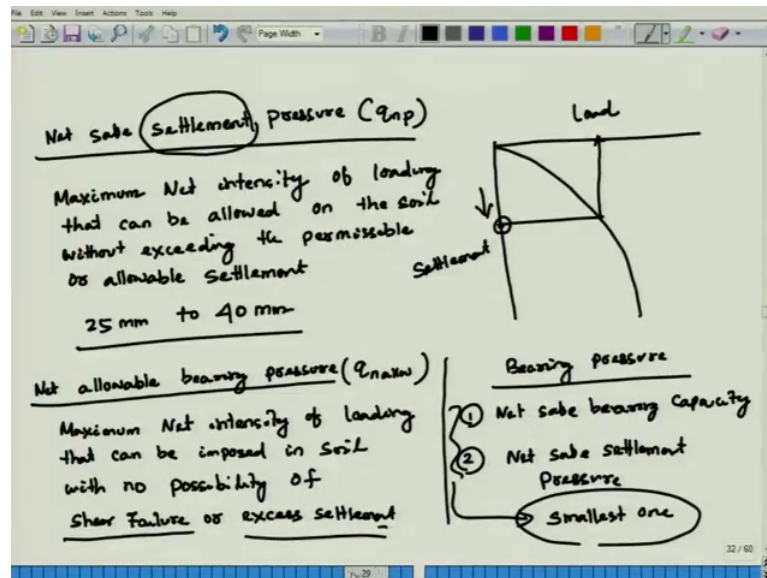 File Edit View Insert Actions Tools Help
Page Width
B I
Net safe settlement pressure (qnp)
Maximum Net intensity of loading
that can be allowed on the soil
without exceeding the permissable
or allowable settlement
25 mm to 40 mm
Load
Settlement
Net allowable bearing pressure (qnaλλω)
Maximum Net intensity of loading
that can be imposed in soil
with no possibility of
Shear Failure or excess settlement
Bearing pressure
1 Net safe bearing capacity
2 Net safe settlement
pressure
Smallest one
32 / 60